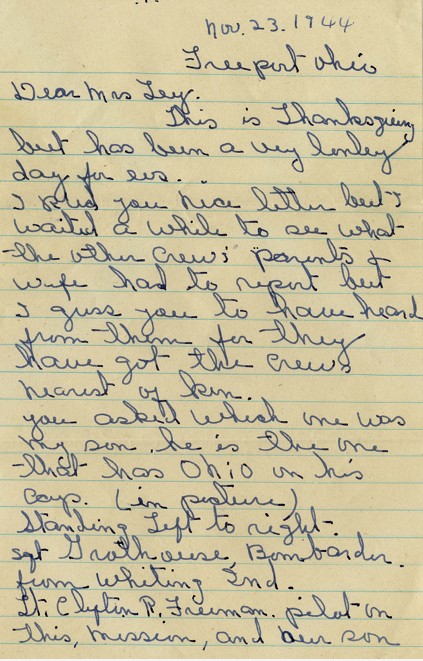 Nov. 23. 1944
Freeport Ohio
Dear Mrs Ley.
This is Thanksgiving
but has been a very lonley
day for us.
I rcud you nice letter but I
waited a while to see what
the other crew's parents &
wife had to report but
I guss you to have heard
from them for they
have got the crews
nearest of kin.
you asked which one was
my son, he is the one
that has Ohio on his
cap. (in picture)
Standing Left to right.
sgt Grothouse Bombarder.
from Whiting Ind.
Lt. Clyton P. Freeman. pilot on
this, mission, and our son